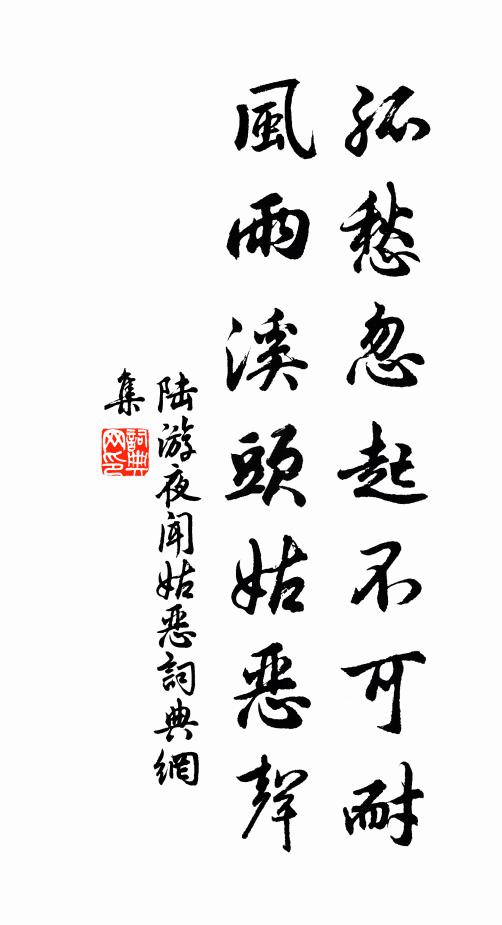 孤愁忽起不可耐
風雨溪頭姑惡聲
陆游夜闻姑恶詞典網
集
詞典网印